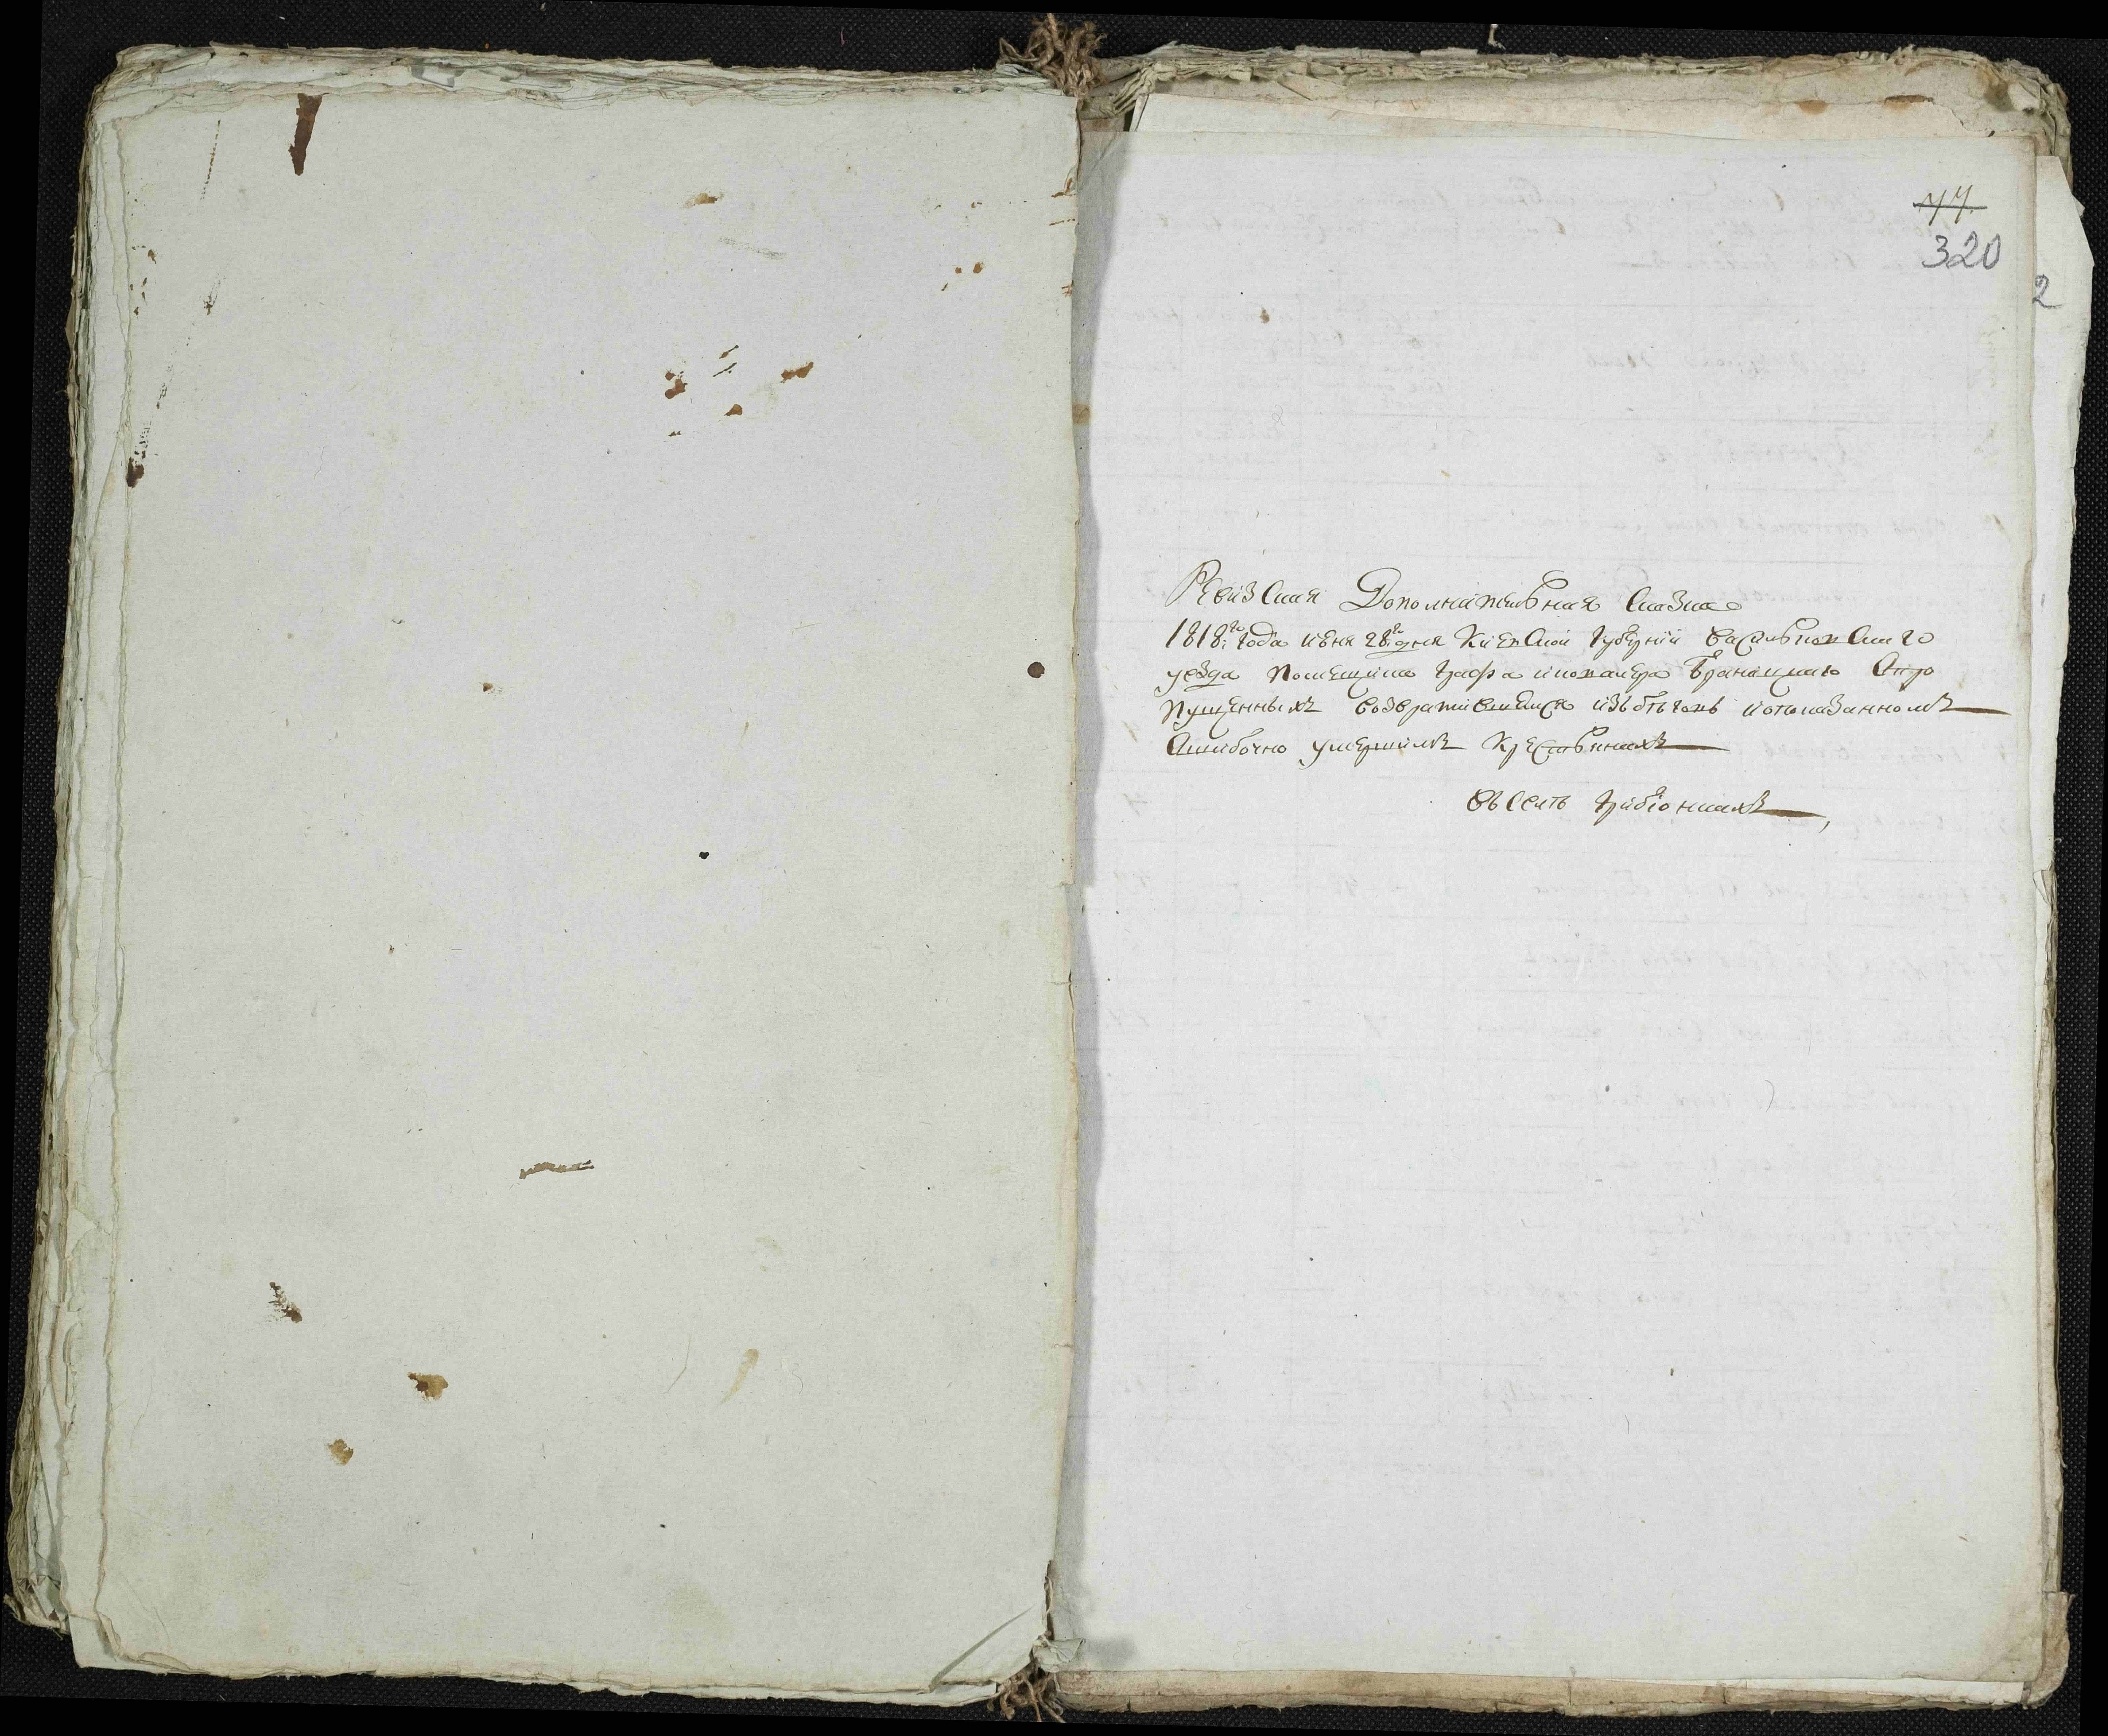 77
320
2
Ревизская Дополнительная Сказка
1818го года июня 28го дня Киевской Губернии Васильковского
уезда Помещика графа и кавалера Браницкого О про
пущенныхъ возвратившихся изъ бегов и о показанномъ
Ошибочно умершимъ крестьянахъ
въ селѣ